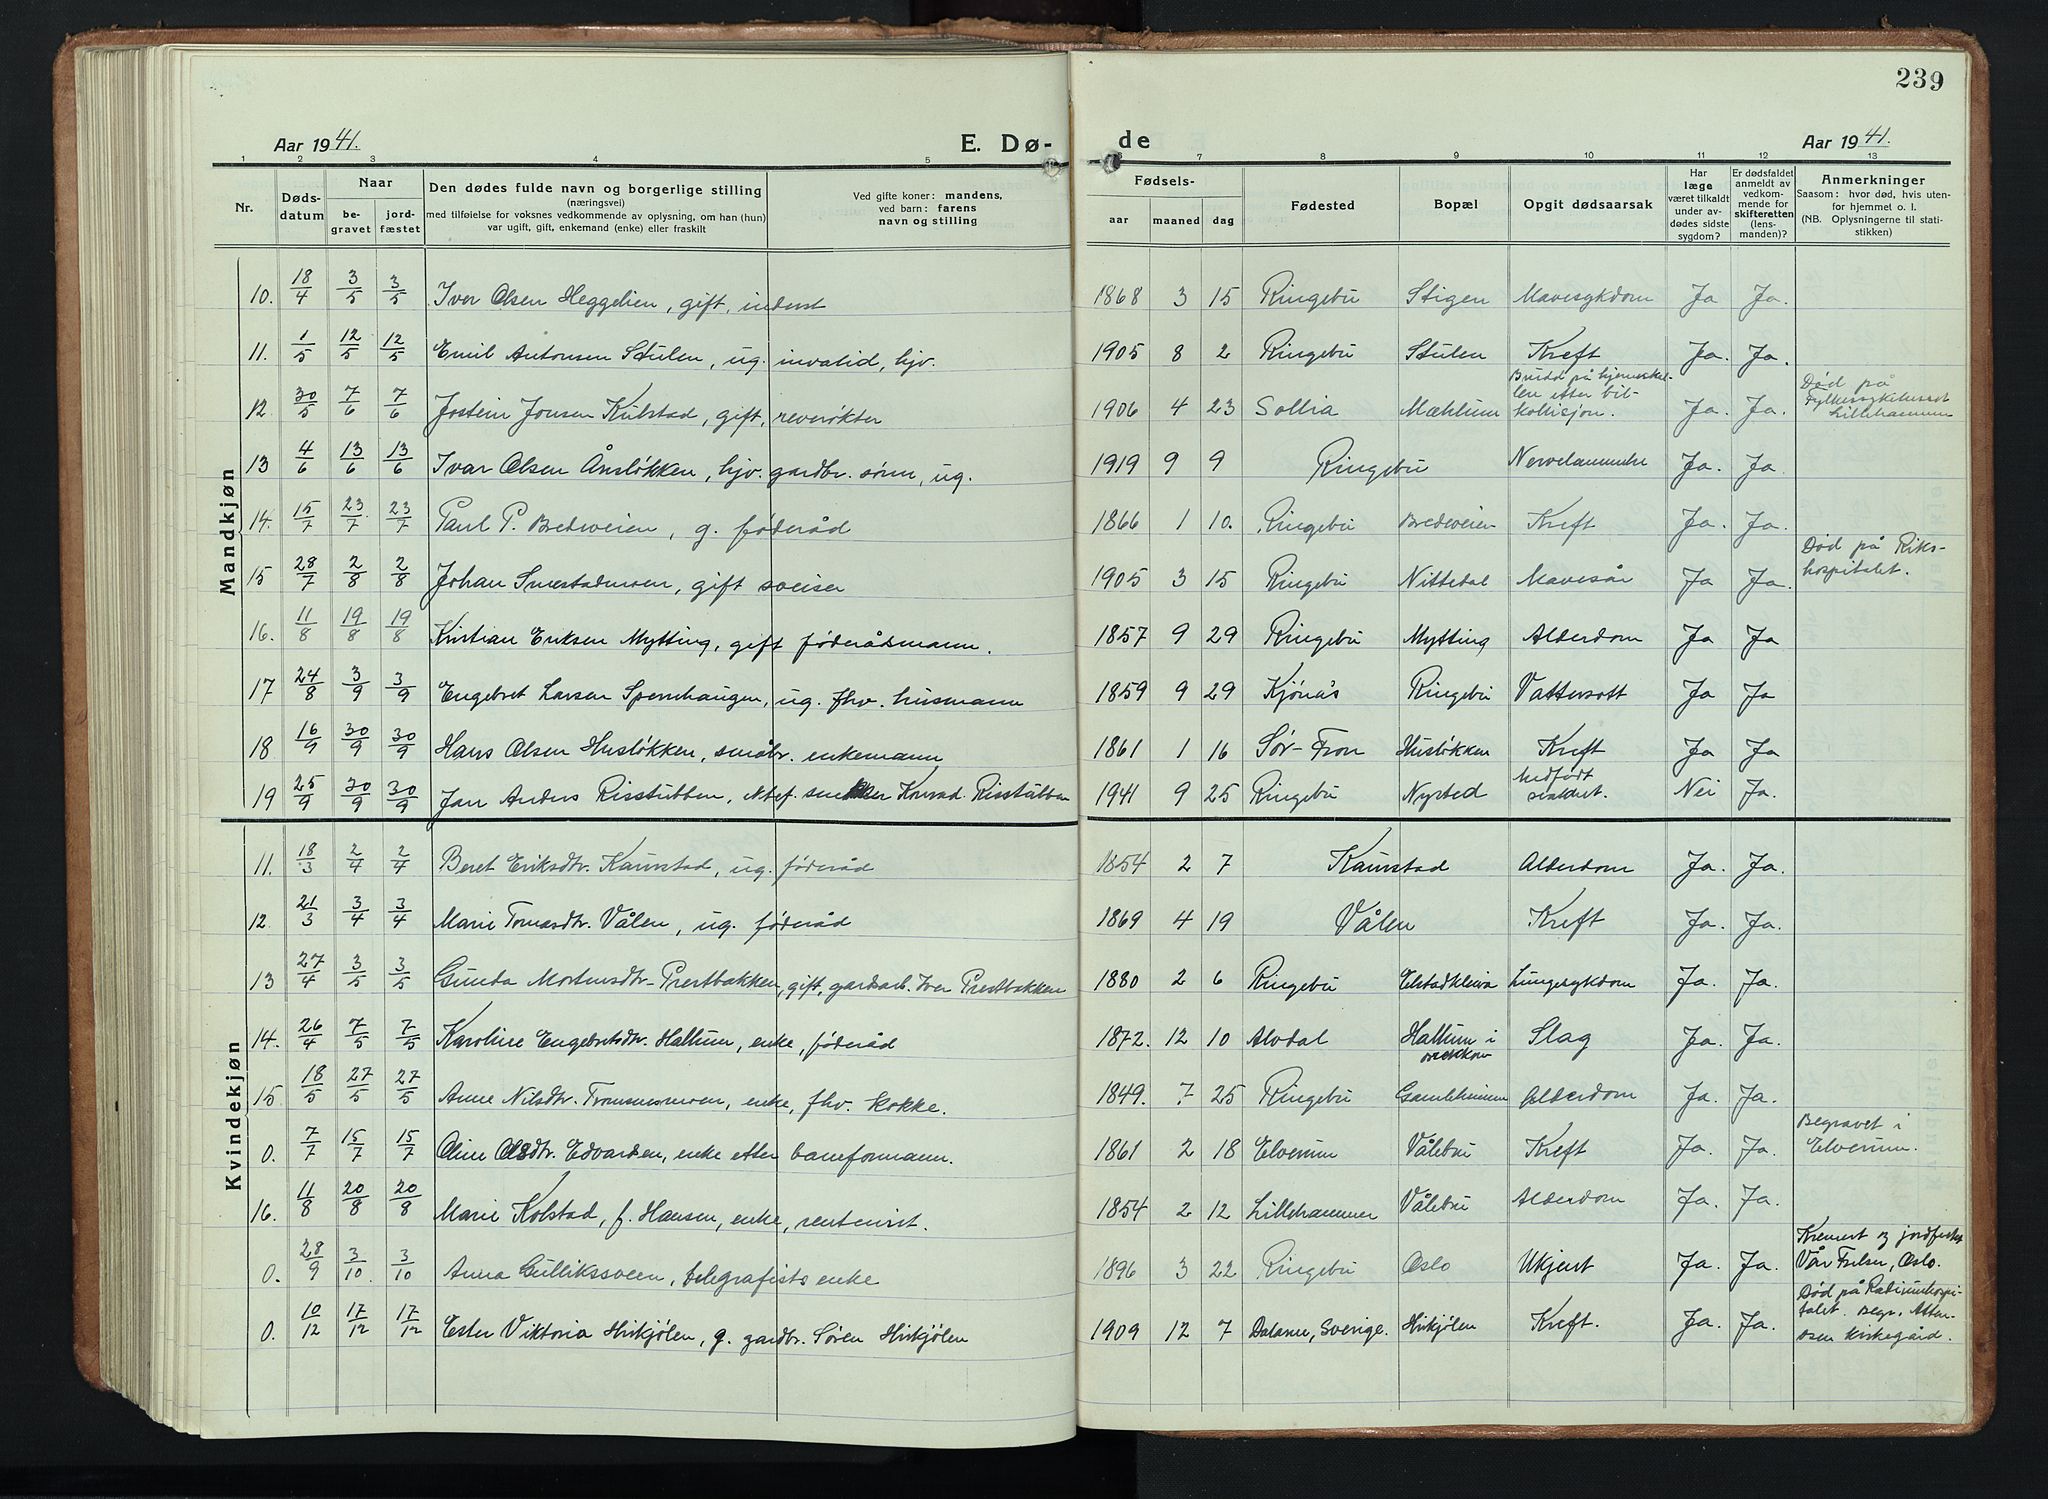 239
Aar 1941. E. Dø- de Aar 1941.
1 2 3 4 5 6 7 8 9 10 11 12 13
Nr. Døds-datum Naar be-gravet jord-fæstet
Den dødes fulde navn og borgerlige stilling
(næringsvei)
med tilføielse for voksnes vedkommende av oplysning, om han (hun)
var ugift, gift, enkemand (enke) eller fraskilt
Ved gifte koner: mandens,
ved barn: farens
navn og stilling
Fødsels- aar maaned dag
Fødested Bopæl Opgit dødsaarsak
Har læge været tilkaldt under av-dødes sidste sygdom?
Er dødsfaldet anmeldt av vedkom-mende for skifteretten (lens-manden)?
Anmerkninger
Saasom: hvor død, hvis uten-for hjemmet o. l.
(NB. Oplysningerne til stati-stikken)
Mandkjøn
10. 18/4 3/5 3/5 Iver Olsen Heggelien, gift, inderst 1868 3 15 Ringebu Stigen Mavesykdom Ja Ja.
11. 1/5 12/5 12/5 Emil Antonsen Stulen, ug. invalid, hjv. 1905 8 2 Ringebu Stulen Kreft Ja. Ja.
12 30/5 7/6 7/6 Jostein Jonsen Kulstad, gift, revrøkter 1906 4 23 Sollia Mæhlum Brudd på hjerneskal-len etter bil-kollisjon. Ja. Ja. Død på Fylkessykehuset Lillehammer
13 4/6 13/6 13/6 Ivar Olsen Ånsløkken, hjv. gardbr. sønn, ug. 1919 9 9 Ringebu Nervelammelse Ja. Ja.
14. 15/7 23/7. 23/7 Paul P. Bredeveien, g. føderåd 1866 1 10. Ringebu Bredeveien Kreft Ja. Ja.
15 28/7 2/8 2/8 Johan Smestadmoen, gift sveiser 1905 3 15 Ringebu Nittedal Mavesår Ja Ja. Død på Riks-hospitalet.
16. 11/8 19/8 19/8 Kristian Eriksen Mytting, gift føderådsmann. 1857 9 29 Ringebu Mytting Alderdom Ja Ja
17 24/8 3/9 3/9 Engebret Larsen Spernhaugen, ug. fhv. husmann 1859 9 29 Kjønås Ringebu Vattersott Ja Ja
18 16/9 30/9 30/9 Hans Olsen Husløkken, småbr. enkemann 1861 1 16 Sør-Fron Husløkken Kreft Ja Ja
19 25/9 30/9 30/9 Jan Anders Risstubben, Konrad Risstubben 1941 9 25 Ringebu Nysted Medfødt Nei Ja.
Kvindekjøn
11. 18/3 2/4 2/4 Beret Eriksdtr. Kaurstad, ug. føderåd 1854 2 7 Kaurstad Alderdom Ja. Ja.
12 21/3 3/4 3/4 Marie Tomasdtr. Vålen, ug. føderåd 1869 4 19 Vålen Kreft Ja. Ja.
13 27/4 3/5 3/5 Gunda Mortensdtr. Prestbakken, gift, gardsarb. Iver Prestbakken 1880 2 6 Ringebu Elstadkleiva Lungesykdom Ja. Ja.
14. 26/4 7/5 7/5 Karoline Engebretsdtr. Hallum, enke, føderåd 1872. 12 10 Alvdal Hallum i Slag Ja. Ja.
15 18/5 27/5 27/5 Anne Nilsdtr. Tromsnesmoen, enke, fhv. kokke. 1849. 7 25 Ringebu Gamleheimen Alderdom Ja. Ja.
0. 7/7 15/7 15/7 Oline Olsdtr. Edvardsen, enke etter baneformann. 1861 2 18 Elverum Vålebru Kreft Ja. Ja. Begravet i Elverum.
16. 11/8 20/8 20/8 Marie Kolstad, f. Hansen, enke, rentenist. 1854 2 12 Lillehammer Vålebru Alderdom Ja. Ja.
0. 28/9 3/10. 3/10 Anna Gullikssveen, telegrafists enke 1896 3 22 Ringebu Oslo Ukjent Ja. Ja. Kremert og jordfestet Vår Frelser, Oslo.
0. 10/12 17/12 17/12 Ester Viktoria Hirkjølen, g. gardbr. Søren Hirkjølen 1909 12 7 Dalarne, Sverige. Hirkjølen Kreft. Ja. Ja. Død på Radiumhospi-talet. Begr. Atten-osen kirkegård.